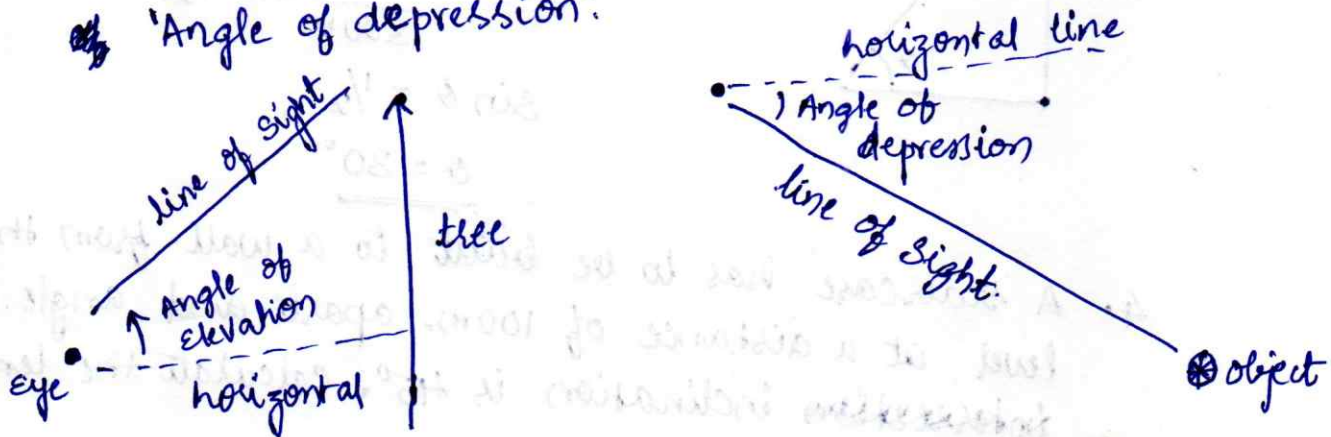 'Angle of depression.
line of sight
Angle of
Elevation
tree
Eye
horizontal
horizontal line
Angle of
depression
line of sight.
object